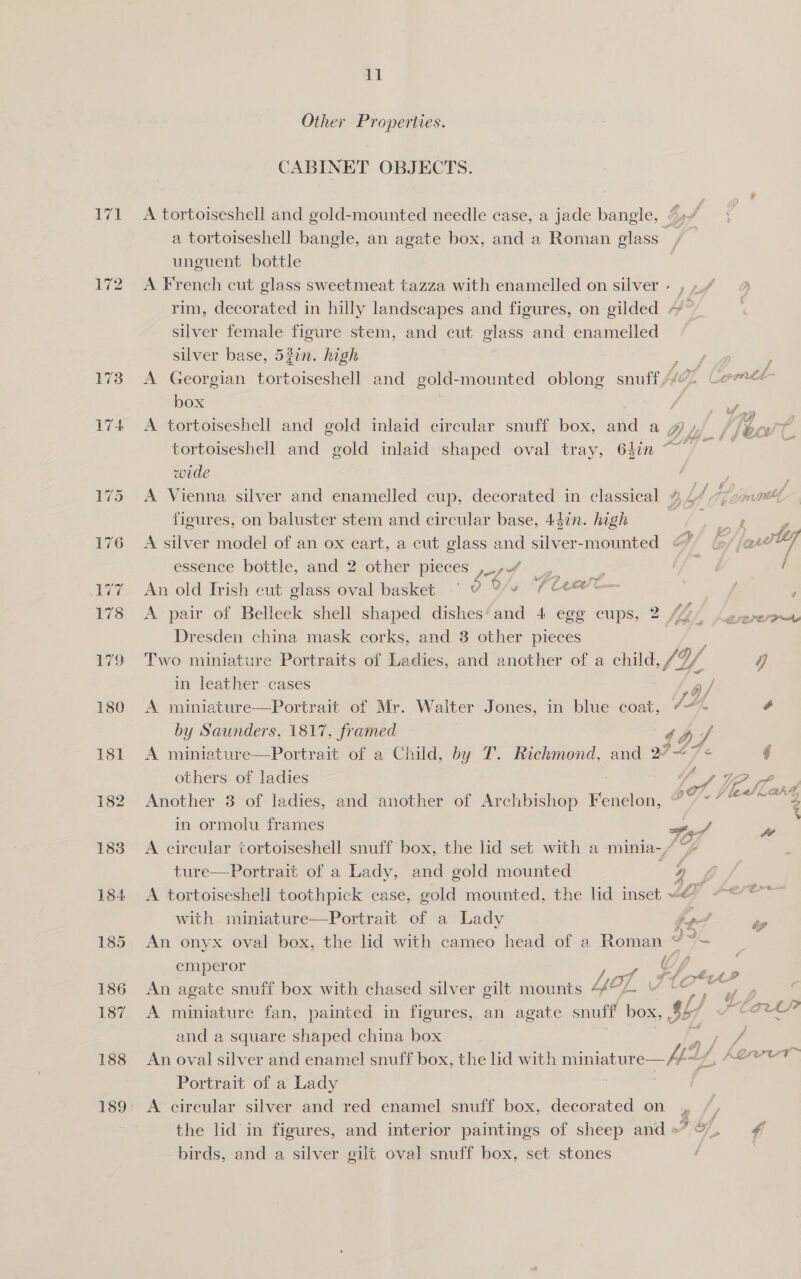 11
Other Properties.
CABINET OBJECTS.
171 A tortoiseshell and gold-mounted needle case, a jade bangle,
a tortoiseshell bangle, an agate box, and a Roman glass
unguent bottle
172 A French cut glass sweetmeat tazza with enamelled on silver
rim, decorated in hilly landscapes and figures, on gilded
silver female figure stem, and cut glass and enamelled
silver base, 5¾in. high
173 A Georgian tortoiseshell and gold-mounted oblong snuff
box
174 A tortoiseshell and gold inlaid circular snuff box, and a
tortoiseshell and gold inlaid shaped oval tray, 6½in
wide
175 A Vienna silver and enamelled cup, decorated in classical
figures, on baluster stem and circular base, 4½in. high
176 A silver model of an ox cart, a cut glass and silver-mounted
essence bottle, and 2 other pieces
177 An old Irish cut glass oval basket
178 A pair of Belleek shell shaped dishes and 4 egg cups, 2
Dresden china mask corks, and 3 other pieces
179 Two miniature Portraits of Ladies, and another of a child,
in leather cases
180 A miniature—Portrait of Mr. Walter Jones, in blue coat,
by Saunders, 1817, framed
181 A miniature—Portrait of a Child, by T. Richmond, and 2
others of ladies
182 Another 3 of ladies, and another of Archbishop Fenelon,
in ormolu frames
183 A circular tortoiseshell snuff box, the lid set with a minia-
ture—Portrait of a Lady, and gold mounted
184 A tortoiseshell toothpick case, gold mounted, the lid inset
with miniature—Portrait of a Lady
185 An onyx oval box, the lid with cameo head of a Roman
emperor
186 An agate snuff box with chased silver gilt mounts
187 A miniature fan, painted in figures, an agate snuff box,
and a square shaped china box
188 An oval silver and enamel snuff box, the lid with miniature—
Portrait of a Lady
189 A circular silver and red enamel snuff box, decorated on
the lid in figures, and interior paintings of sheep and
birds, and a silver gilt oval snuff box, set stones